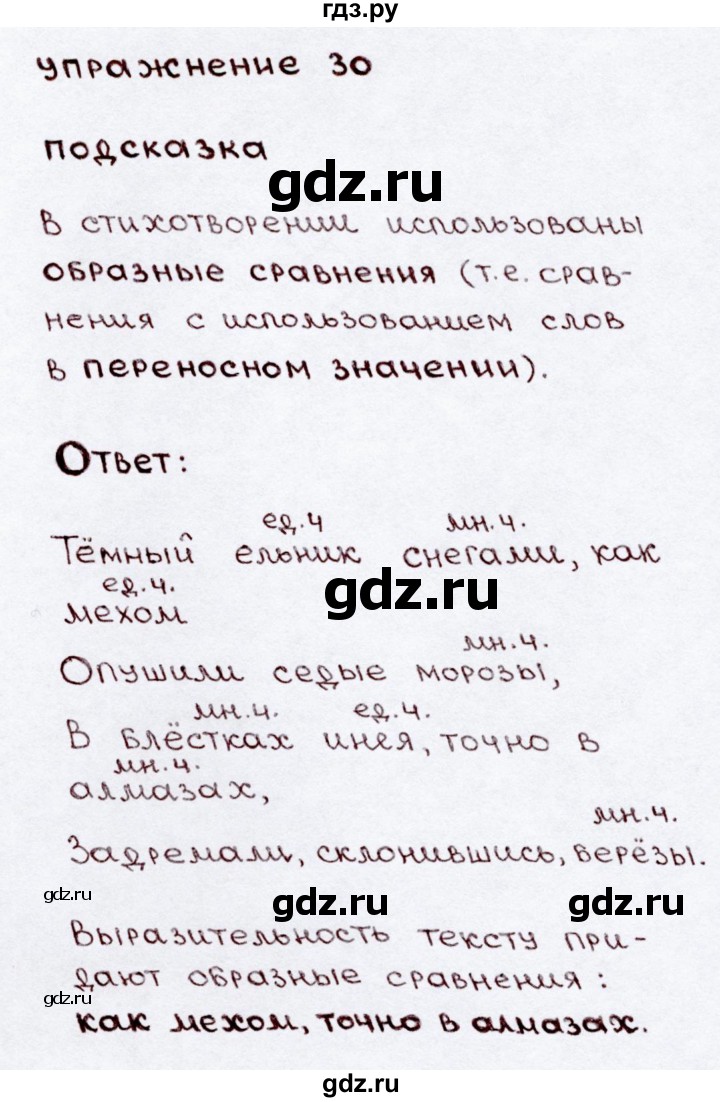 гдз.ру
упражнение 30
подсказка
gdz.ru
В стихотворении использованы
образные сравнения (т.е. срав-
нения с использованием слов
в переносном значении).
Ответ:
ед.ч мн.ч.
Тёмный ельник снегами, как
ед.ч.
gdz.ru
мехом
мн.ч.
Опушили седые морозы,
мн.ч. ед.ч.
В блёстках инея, точно в
мн.ч.
алмазах,
мн.ч.
Задремали, склонившись, берёзы.
gdz.ru
gdz.ru gdz.ru
Выразительность тексту при-
дают образные сравнения:
gdz.ru
как мехом, точно в алмазах.
gdz.ru